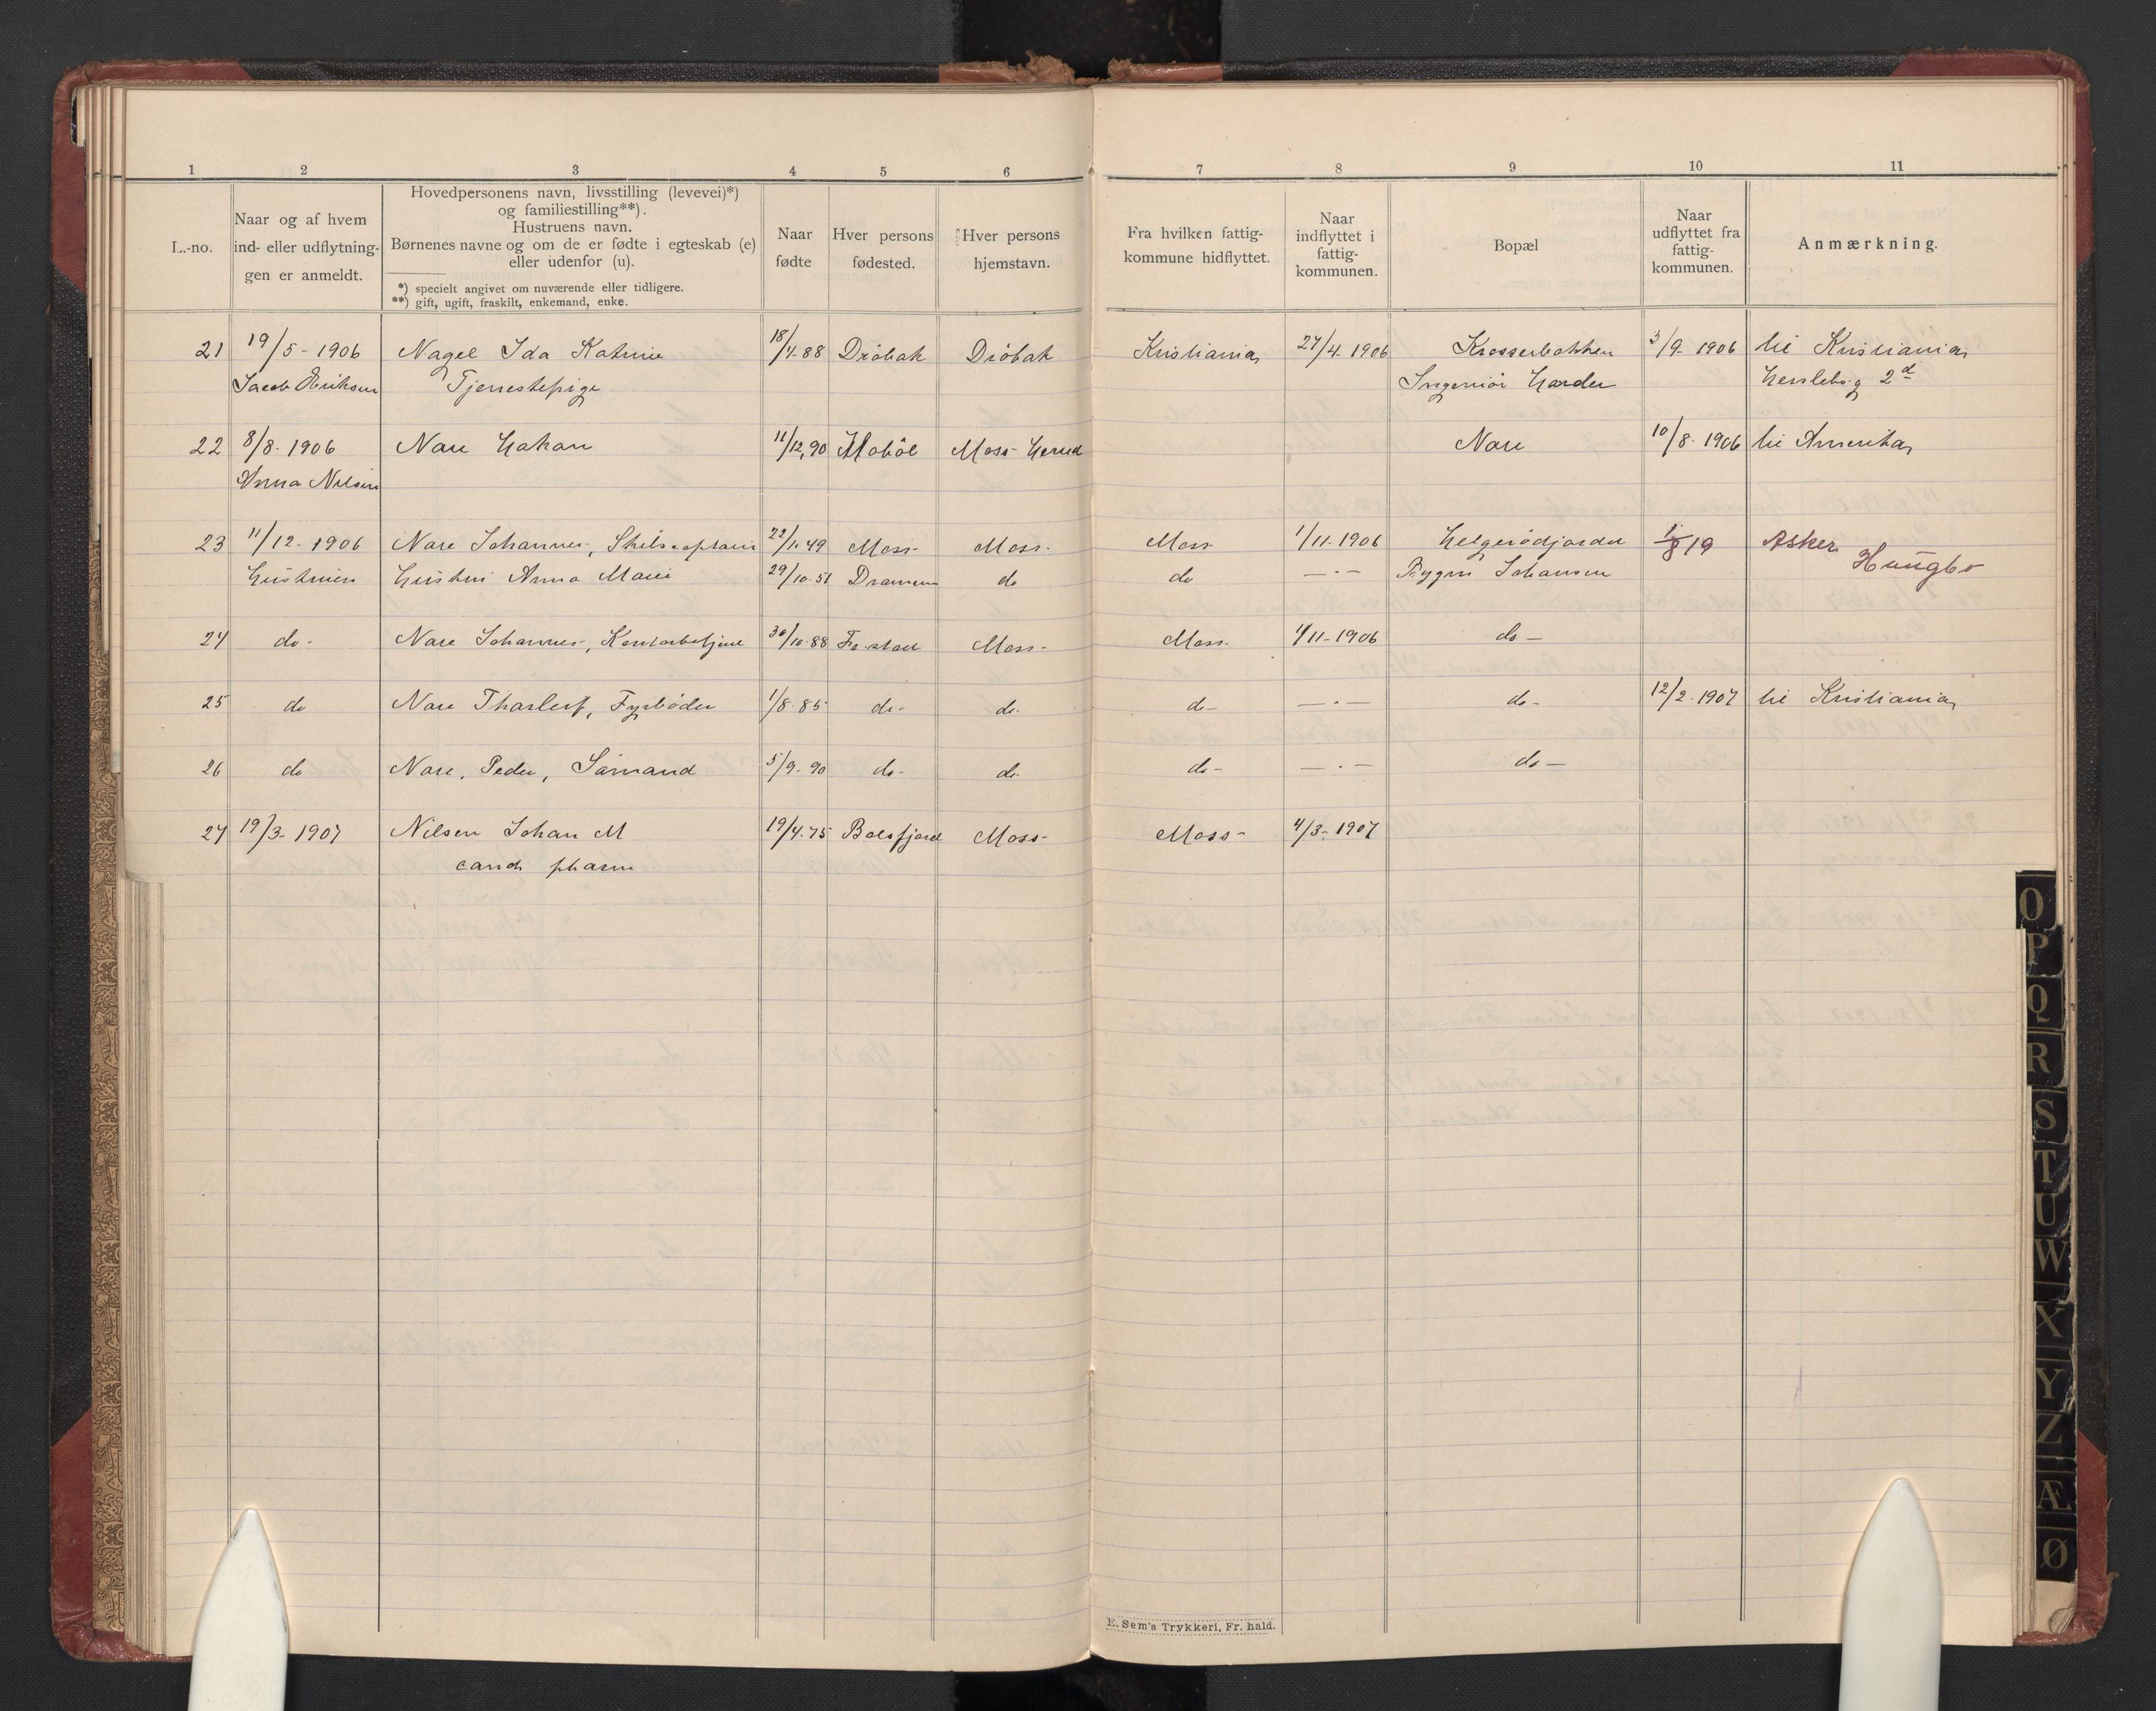 1 2 3 4 5 6 7 8 9 10 11
L.-no.
Naar og af hvem
ind- eller udflytnin-
gen er anmeldt.
Hovedpersonens navn, livsstilling (levevei)*)
og familiestilling**).
Hustruens navn.
Børnenes navne og om de er fødte i egteskab (e)
eller udenfor (u).
*) specielt angivet om nuværende eller tidligere.
**) gift, ugift, fraskilt, enkemand, enke.
Naar
fødte
Hver persons
fødested.
Hver persons
hjemstavn.
Fra hvilken fattig-
kommune hidflyttet.
Naar
indflyttet i
fattig-
kommunen.
Bopæl
Naar
udflyttet fra
fattig-
kommunen.
Anmærkning.
21 19/5 - 1906 Nagel Ida Katrine 18/4.88 Dröbak Dröbak Kristiania 27/4. 1906 Krosserbakken 3/9. 1906 til Kristiania
Jacob Eriksen Tjenestepige Ingeniör Harder Herslebsg 2
22 8/8. 1906 Nare Hakan 11/12.90 Hoböl Moss Nare 10/8. 1906 til Amerika
Anna Nilsen
23 11/12. 1906 Nare Johannes, Skibskaptain 22/1.49 Moss Moss. Moss 1/11.1906 Helgerødjordet 1/8 19 Asker
Hustruen Hustru Anna Marie 29/10.51 Drammen do do — . — Bygm Johansen Haugbo
24 do. Nare Johannes, Kontorbetjent 30/10.88 Fr.stad Moss. Moss. 1/11. 1906 do —
25 do Nare Tharlerf, Fyrböder 1/8.85 do. do. do — . — do. 12/2.1907 til Kristiania
26 do Nare, Peder, Sömand 5/9.90 do. do. do — . — do —
27 19/3. 1907 Nilsen Johan M 19/4.75 Balsfjord Moss. Moss. 4/3. 1907
cand pharm
E. Sem's Trykkeri, Fr. hald.
O
P
Q
R
S
T
U
W
X
Y
Z
Æ
Ø